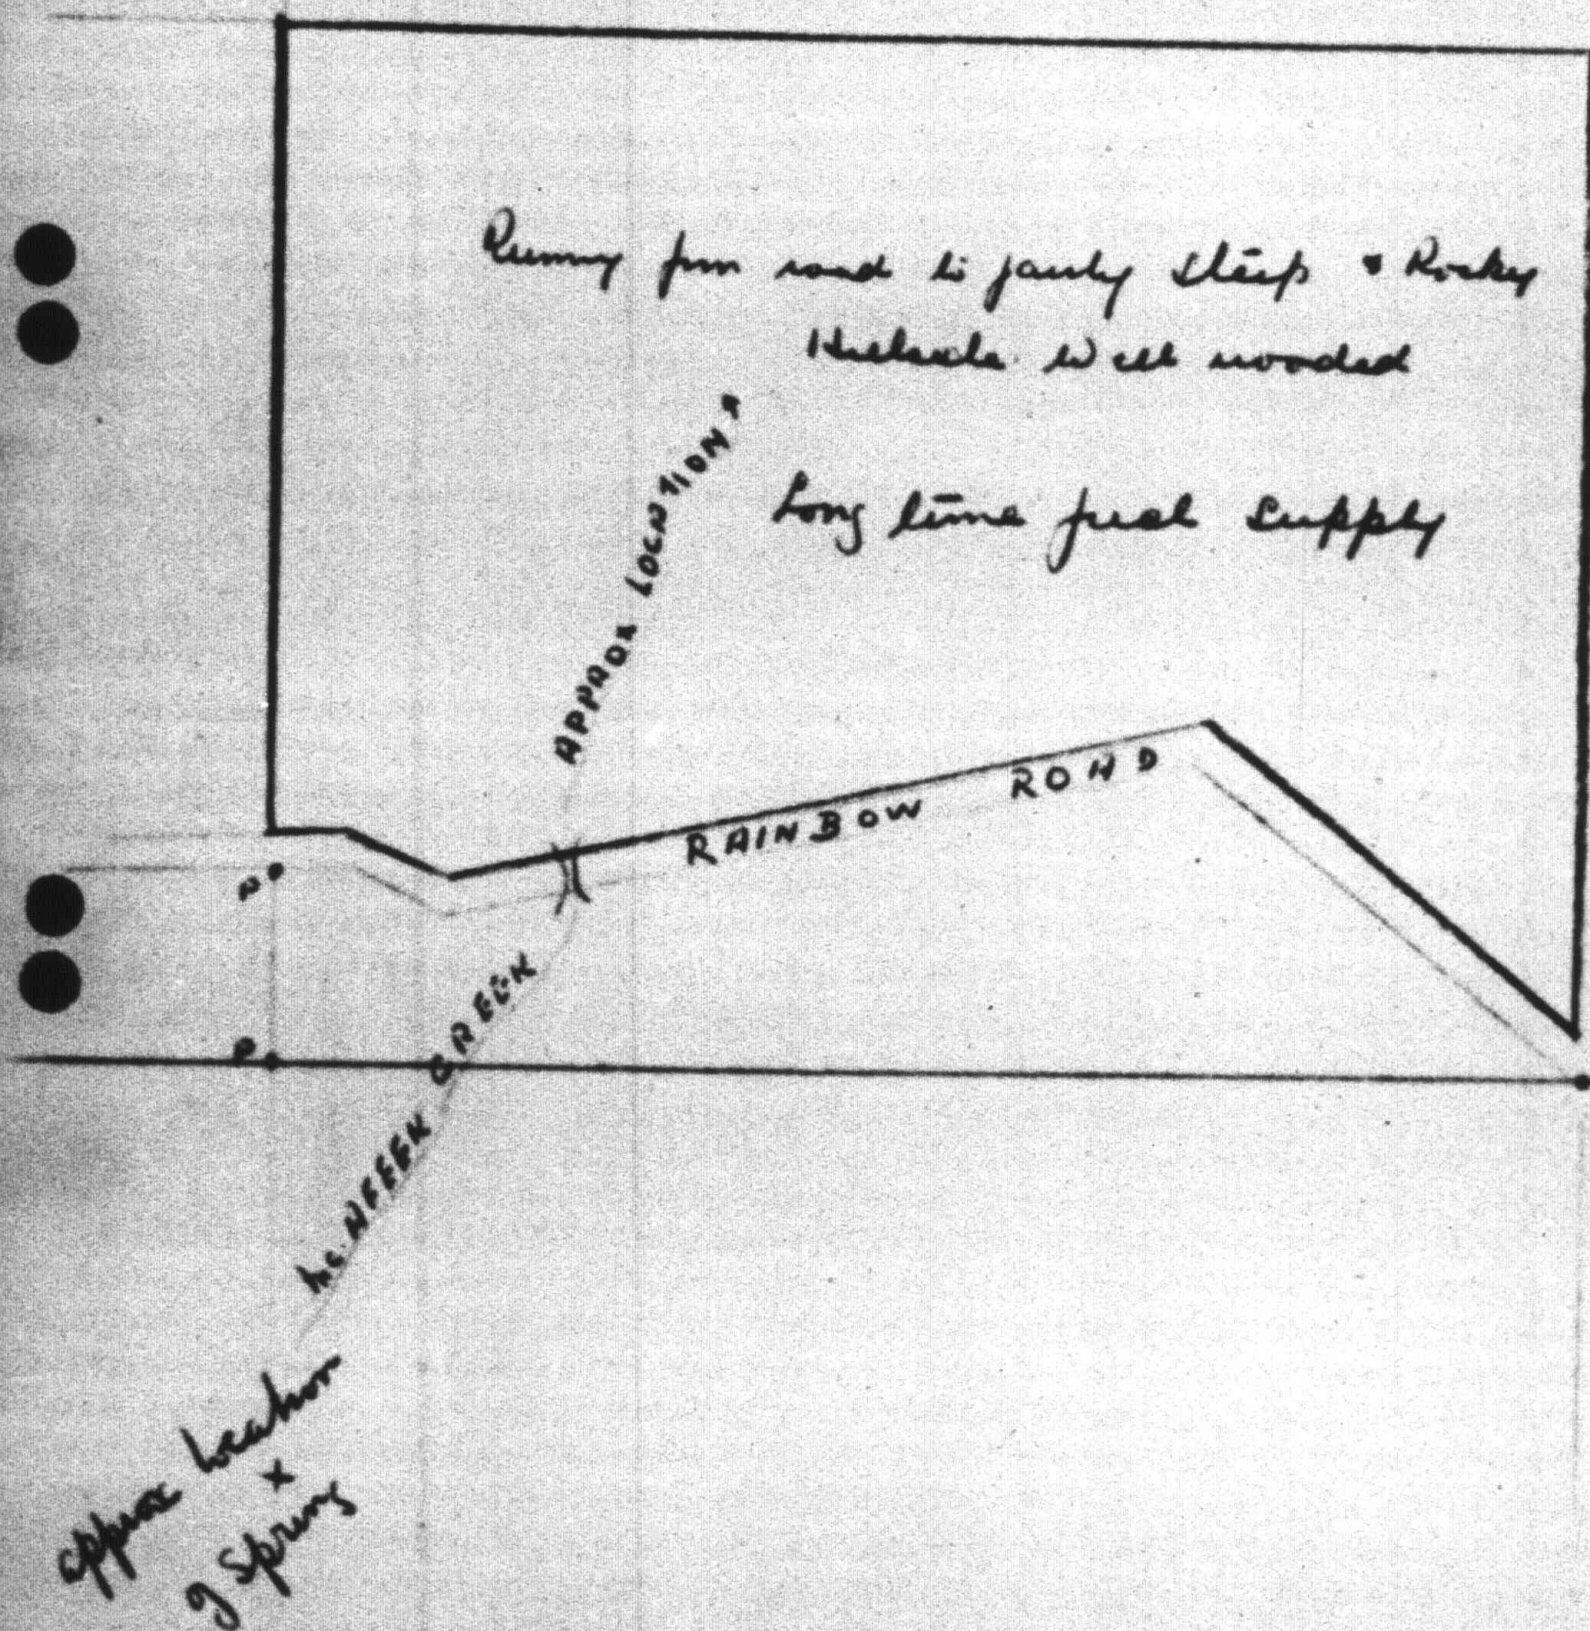 Running from road to partly steep & Rocky
Hillside Well wooded
Long time fuel supply
APPROX LOCATION
RAINBOW ROAD
CREEK
approx location
x
of Spring